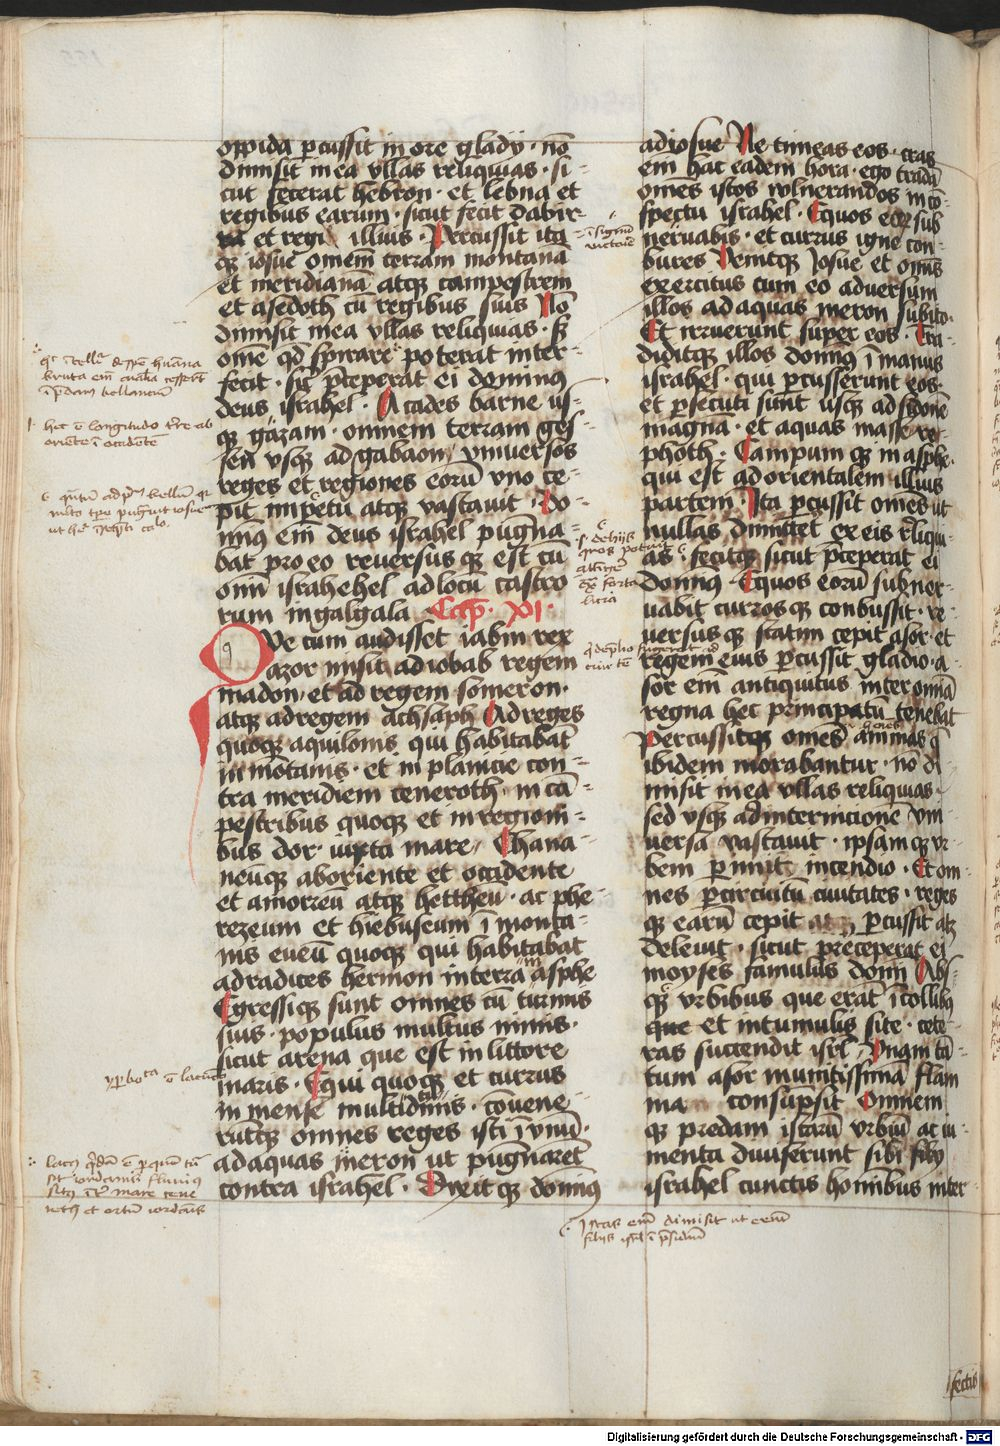 oppida p̄cussit in ore gladij · nō
dimisit in ea vllas reliquias · si-
cut fecerat hebron · et lebna et
regibus earum · sicut fecit dabir-
et regi illius · Percussit ita
qꝫ iosue omnem terram montanā
et meridianā atqꝫ campestrem
et asedoth cū regibus suis Nō
dimisit in ea vllas reliquias · sꝫ
omē qd̄ spirare poterat inter-
fecit · sic̄ p̄ceperat ei dominus
deus israhel · A cades barne us-
qꝫ gazam · omnem terram ges-
sen vsqꝫ ad gabaon vniuersos
reges et regiones eorū vno ce-
pit impetu atqꝫ vastauit · Do-
min̄ em̄ deus israhel pugna-
bat pro eo reuersus qꝫ est cū
omī israhehel ad locū castro
rum in galgala Cap̄ · XI ·
Que cum audisset iabin rex
azor misit ad iobab regem
madon · et ad regem someron ·
atqꝫ ad regem achsaph Ad reges
quoqꝫ aquilonis qui habitabāt
in mōtanis · et in planicie con-
tra meridiem ceneroth · in cā-
pestribus quoqꝫ et in regioni-
bus dor · iuxta mare Chana-
neūqꝫ ab oriente et occidente
et amorreū atqꝫ hettheū · ac phe
rezeum et hiebuseum ī monta-
nis eueū quoqꝫ qui habitabat
ad radices hermon in terra asphe
Egressiqꝫ sunt omnes cū turmis
suis · populus multus nimis ·
sicut arena que est in littore
maris · Equi quoqꝫ et currus
in mense multitudinis · cōuene-
rūtqꝫ omnes reges isti ī vnū ·
ad aquas meron ut pugnarēt
contra israhel · Dixit qꝫ domin̄
ad iosue Ne timeas eos · cras
em̄ hac eadem hora · ego tradā
omēs istos vulnerandos in cō-
spectu israhel · Equos eorꝫ sub
neruabis · et currus igne con-
bures Venitqꝫ Iosue et omnis
exercitus cum eo aduersum
illos ad aquas meron subito ·
Et irruerunt super eos · Tra
diditqꝫ illos domin̄ ī manus
israhel · qui p̄cusserunt eos ·
et p̄secuti sunt usqꝫ ad sydonē
magnā · et aquas masse re-
photh · Campum qꝫ in asphe ·
qui est ad orientalem illius
partem Ita p̄cussit omēs ut
nullas dimittet ex eis r̄liqui-
as · fecitqꝫ sicut p̄ceperat ei
Domin̄ · Equos eorū subner-
uabit currosqꝫ conbussit · re-
uersusqꝫ statim cepit asor · et
regem eius p̄cussit gladio · a-
sor em̄ antiquitus inter omīa
regna hec principatū tenebat
Percussitqꝫ omēs animas q̄
ibidem morabantur · nō di
misit in ea vllas reliquias ·
sed vsqꝫ ad internicionē vni
uersa vastauit · ipsam qꝫ vr-
bem p̄imit incendio · Et om-
nes p̄ circuitū ciuitates · reges
qꝫ earū cepit p̄cussit atqꝫ
deleuit · sicut preceperat ei
moyses famulus domī Abs-
qꝫ vrbibus que erāt ī collibꝫ
que et in tumulis site · cete-
ras succendit isrl̄ Vnam tā-
tum asor munitissimā flam
ma consūpsit Omnem
qꝫ predam istarū vrbiū ac iu-
menta diuiserunt sibi filij
israhel cunctis hominibus inter
fectis
Digitalisierung gefördert durch die Deutsche Forschungsgemeinschaft - DFG